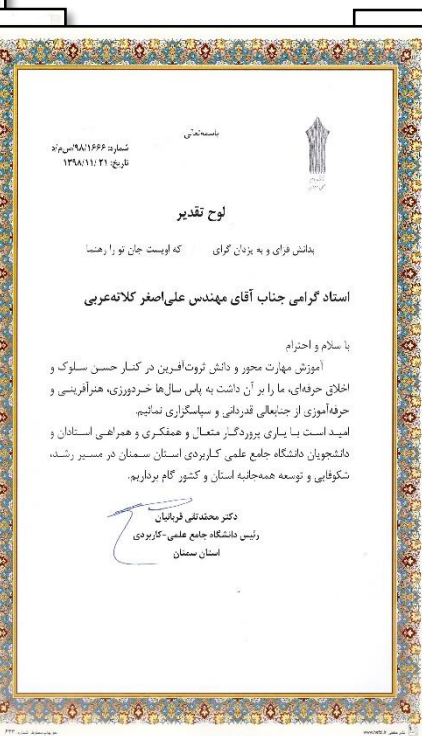 باسمه‌تعالی
شماره: ۹۸/۱۶۶۶/س‌م‌/د
تاریخ: ۱۳۹۸/۱۱/۲۱
لوح تقدیر
بدانش فزای و به یزدان گرای که اویست جان تو را رهنما
استاد گرامی جناب آقای مهندس علی‌اصغر کلاته‌عربی
با سلام و احترام
آموزش مهارت محور و دانش ثروت‌آفرین در کنار حسن سلوک و
اخلاق حرفه‌ای، ما را بر آن داشت به پاس سال‌ها خردورزی، هنرآفرینی و
حرفه‌آموزی از جنابعالی قدردانی و سپاسگزاری نمائیم.
امید است با یاری پروردگار متعال و همفکری و همراهی استادان و
دانشجویان دانشگاه جامع علمی کاربردی استان سمنان در مسیر رشد،
شکوفایی و توسعه همه‌جانبه استان و کشور گام برداریم.
دکتر محمدتقی قربانیان
رئیس دانشگاه جامع علمی-کاربردی
استان سمنان